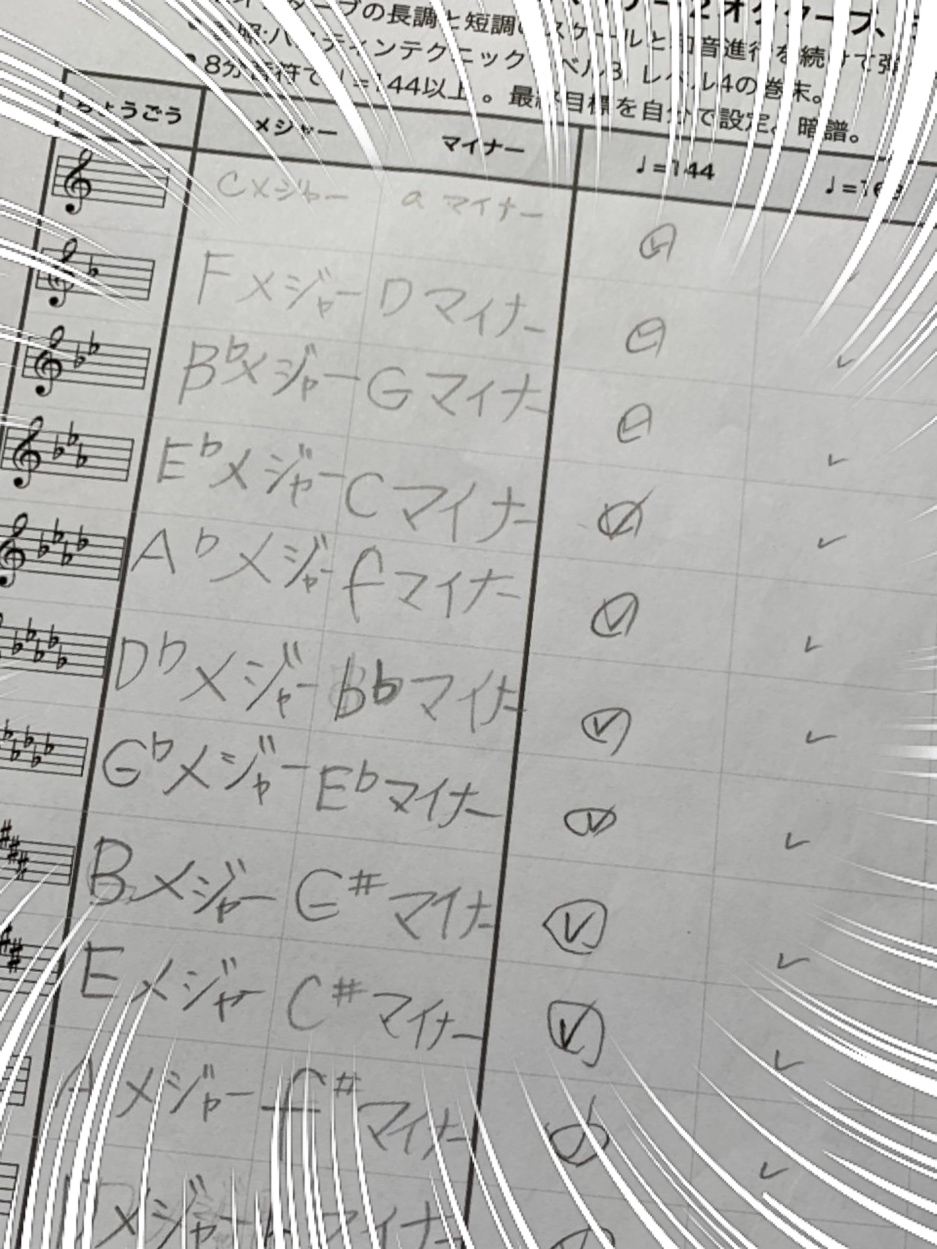 の長調と短調
スケールと
音進行を続けて弾
ンテクニック
レベル4の巻末。
8分音符で♩=144以上。最終目標を自分で設定。暗譜。
ちょうごう メジャー マイナー ♩=144
Cメジャー aマイナー
Fメジャー Dマイナー
B♭メジャー Gマイナー
E♭メジャー Cマイナー
A♭メジャー fマイナー
D♭メジャー B♭マイナー
G♭メジャー E♭マイナー
Bメジャー G#マイナー
Eメジャー C#マイナー
Aメジャー f#マイナー
メジャー マイナー